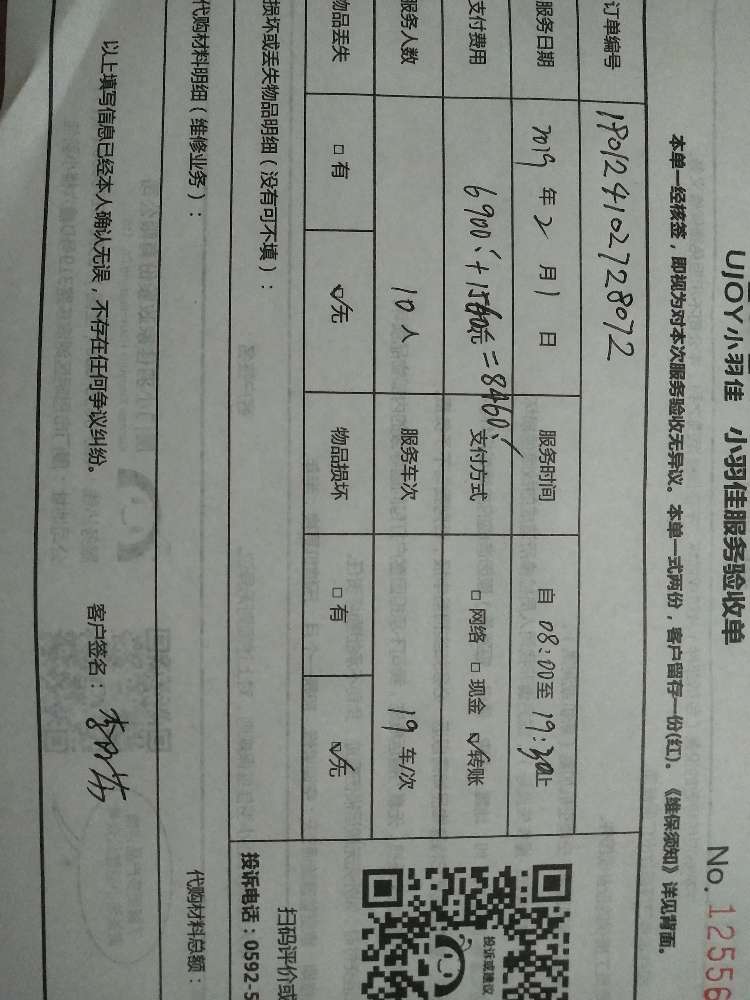 UJOY小羽佳 小羽佳服务验收单
No. 12556
本单一经核签，即视为对本次服务验收无异议。本单一式两份，客户留存一份(红)。《维保须知》详见背面。
订单编号 180124102728072
服务日期 2019 年 2 月 1 日 服务时间 自 08:00 至 19:30 止
支付费用 6900元+1560元=8460元 支付方式 □ 网络 □ 现金 ☑ 转账
服务人数 10 人 服务车次 19 车/次
物品丢失 □ 有 ☑ 无 物品损坏 □ 有 ☑ 无
损坏或丢失物品明细（没有可不填）：
投诉或建议
扫码评价或
投诉电话：0592-5
代购材料明细（维修业务）： 代购材料总额：
以上填写信息已经本人确认无误，不存在任何争议纠纷。 客户签名：